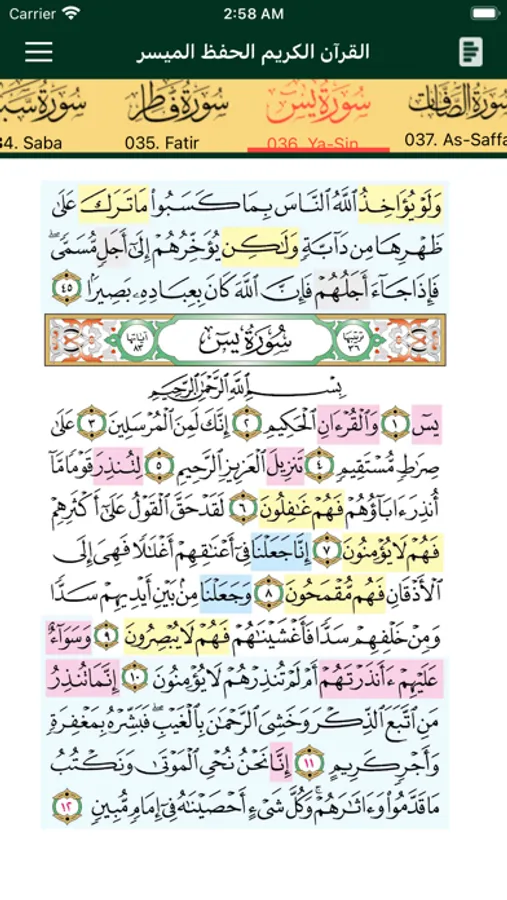 Carrier 2:58 AM
القرآن الكريم الحفظ الميسر
سورة الصافات سورة يس سورة فاطر سورة سبأ
34. Saba 035. Fatir 036. Ya-Sin 037. As-Saffa
وَلَوْ يُؤَاخِذُ ٱللَّهُ ٱلنَّاسَ بِمَا كَسَبُوا۟ مَا تَرَكَ عَلَىٰ
ظَهْرِهَا مِن دَآبَّةٍ وَلَـٰكِن يُؤَخِّرُهُمْ إِلَىٰٓ أَجَلٍ مُّسَمًّى ۖ
فَإِذَا جَآءَ أَجَلُهُمْ فَإِنَّ ٱللَّهَ كَانَ بِعِبَادِهِۦ بَصِيرًۢا ٤٥
ترتيبها ٣٦ سُورَةُ يسٓ آياتها ٨٣
بِسْمِ ٱللَّهِ ٱلرَّحْمَـٰنِ ٱلرَّحِيمِ
يسٓ ١ وَٱلْقُرْءَانِ ٱلْحَكِيمِ ٢ إِنَّكَ لَمِنَ ٱلْمُرْسَلِينَ ٣ عَلَىٰ
صِرَٰطٍ مُّسْتَقِيمٍ ٤ تَنزِيلَ ٱلْعَزِيزِ ٱلرَّحِيمِ ٥ لِتُنذِرَ قَوْمًا مَّآ
أُنذِرَ ءَابَآؤُهُمْ فَهُمْ غَـٰفِلُونَ ٦ لَقَدْ حَقَّ ٱلْقَوْلُ عَلَىٰٓ أَكْثَرِهِمْ
فَهُمْ لَا يُؤْمِنُونَ ٧ إِنَّا جَعَلْنَا فِىٓ أَعْنَـٰقِهِمْ أَغْلَـٰلًا فَهِىَ إِلَى
ٱلْأَذْقَانِ فَهُم مُّقْمَحُونَ ٨ وَجَعَلْنَا مِنۢ بَيْنِ أَيْدِيهِمْ سَدًّا
وَمِنْ خَلْفِهِمْ سَدًّا فَأَغْشَيْنَـٰهُمْ فَهُمْ لَا يُبْصِرُونَ ٩ وَسَوَآءٌ
عَلَيْهِمْ ءَأَنذَرْتَهُمْ أَمْ لَمْ تُنذِرْهُمْ لَا يُؤْمِنُونَ ١٠ إِنَّمَا تُنذِرُ
مَنِ ٱتَّبَعَ ٱلذِّكْرَ وَخَشِىَ ٱلرَّحْمَـٰنَ بِٱلْغَيْبِ ۖ فَبَشِّرْهُ بِمَغْفِرَةٍ
وَأَجْرٍ كَرِيمٍ ١١ إِنَّا نَحْنُ نُحْىِ ٱلْمَوْتَىٰ وَنَكْتُبُ
مَا قَدَّمُوا۟ وَءَاثَـٰرَهُمْ ۚ وَكُلَّ شَىْءٍ أَحْصَيْنَـٰهُ فِىٓ إِمَامٍ مُّبِينٍ ١٢